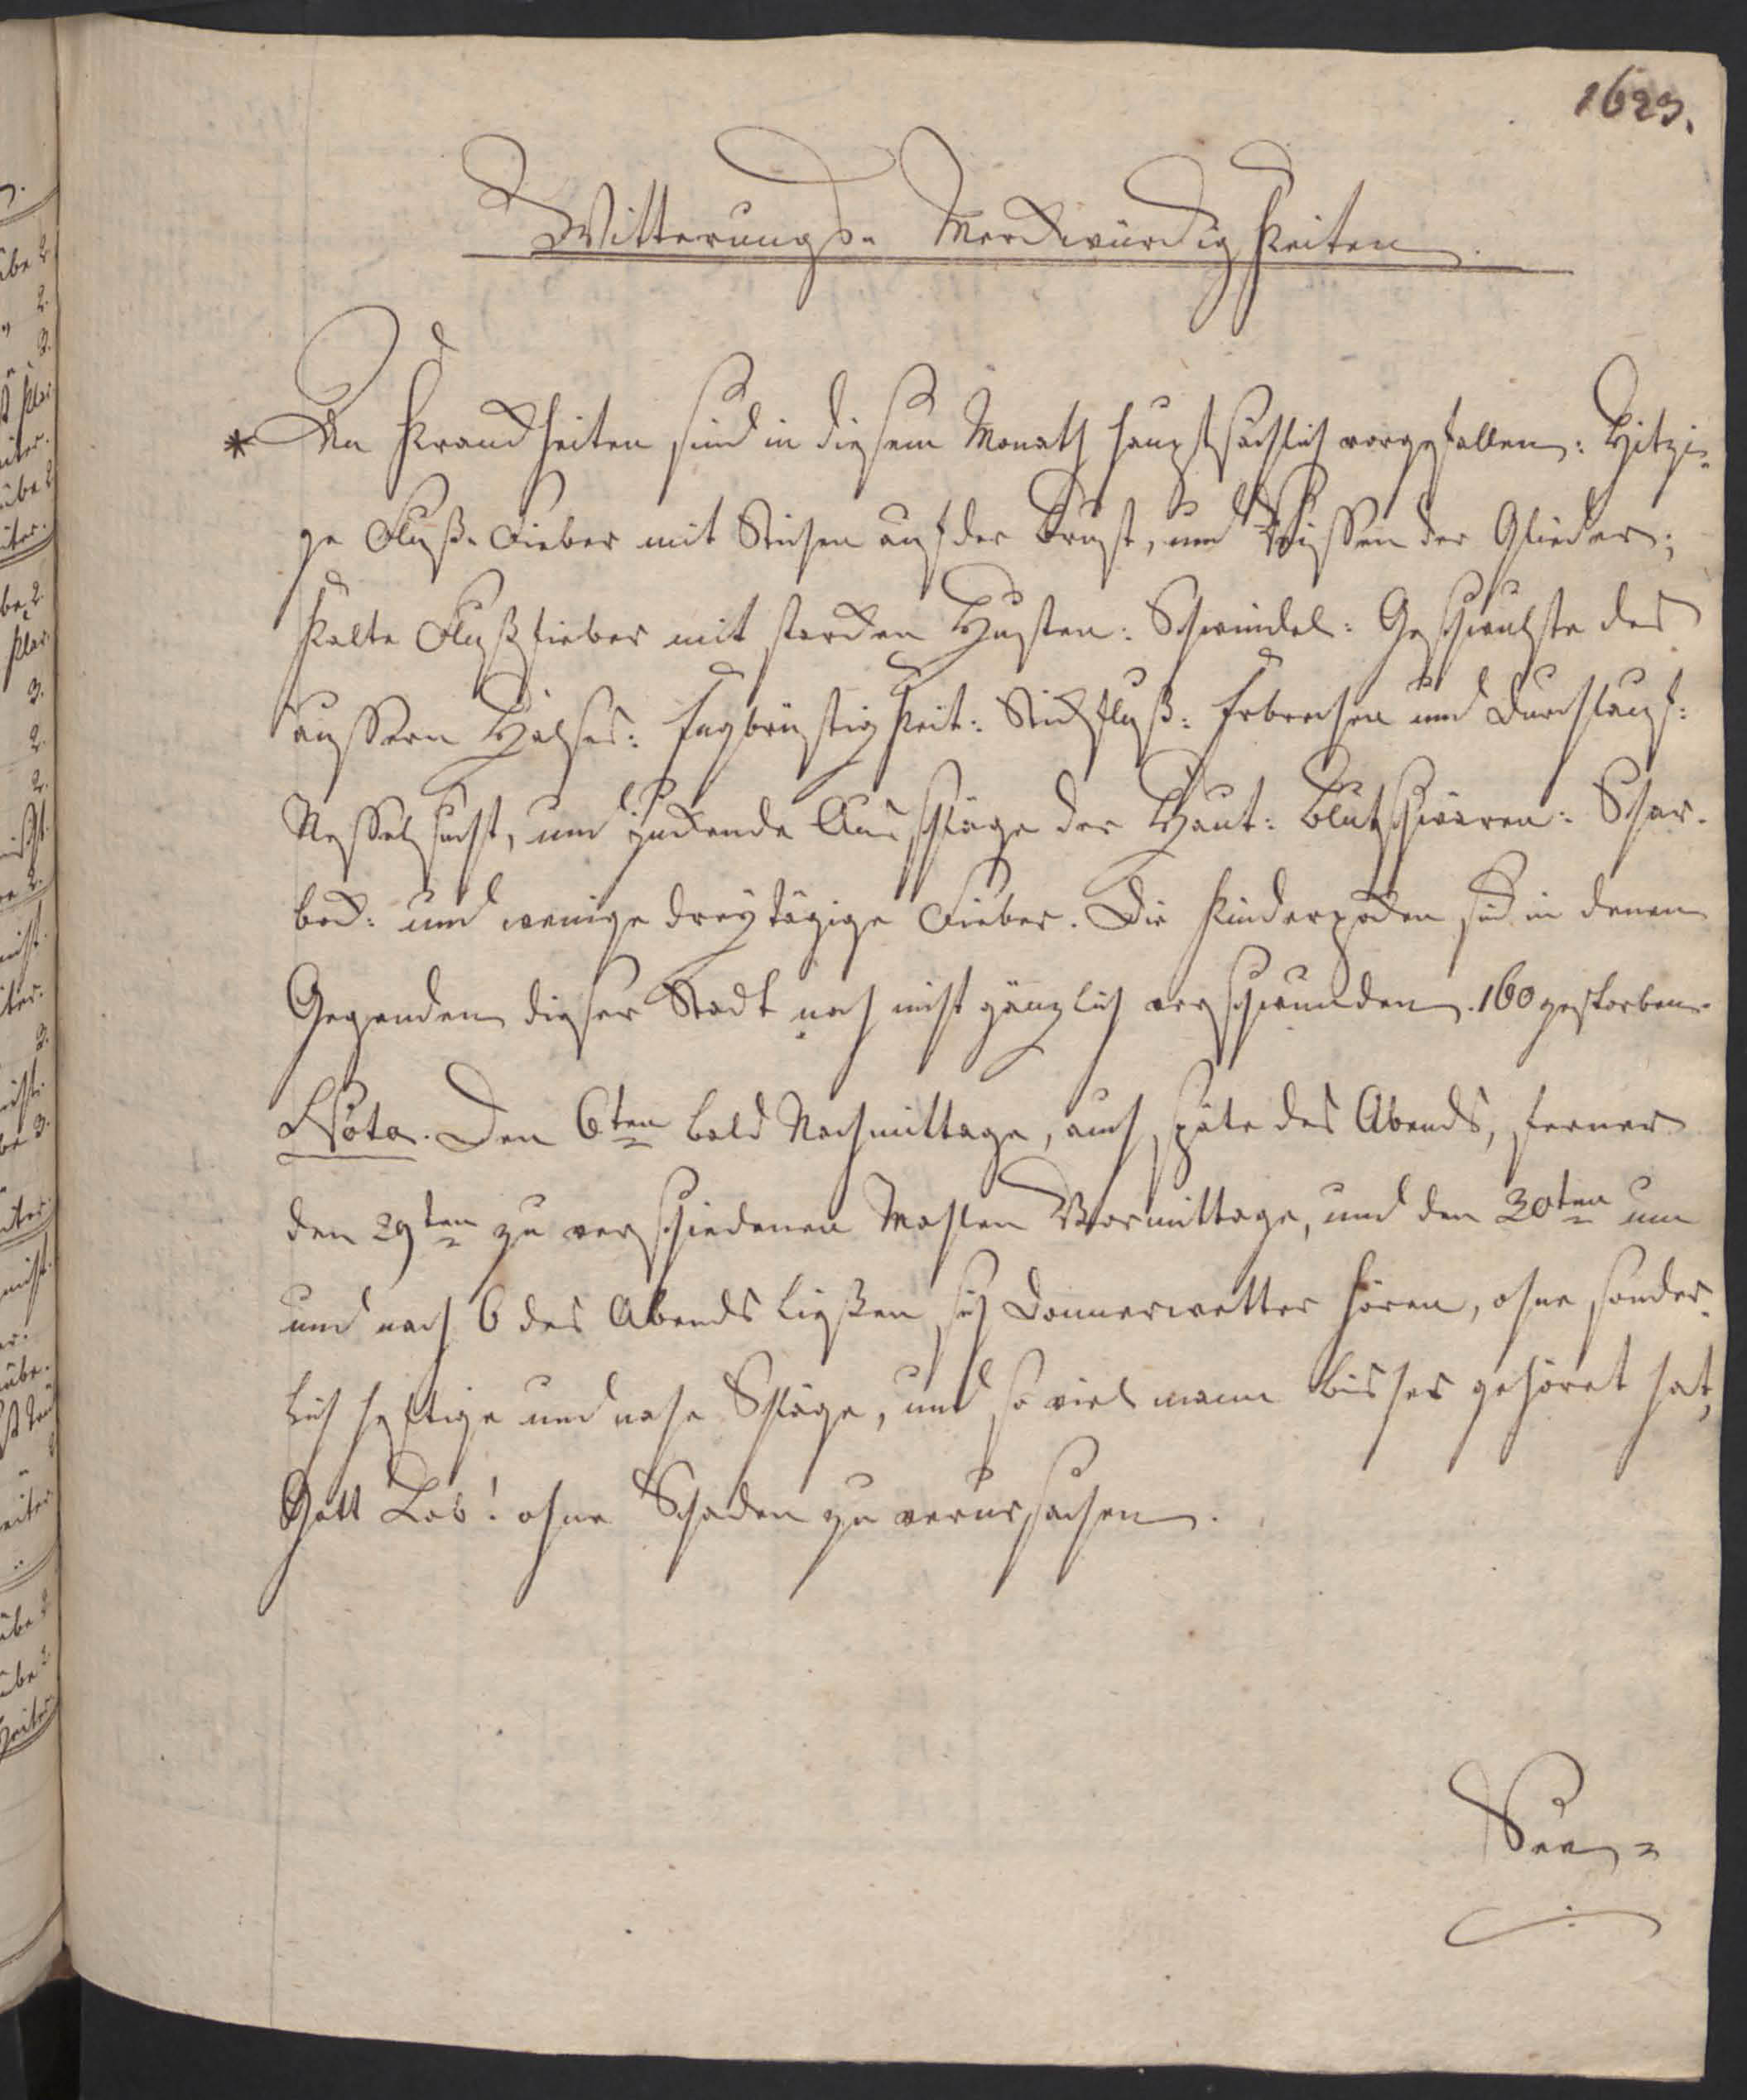 1623.
Witterungs- Merckwürdigkeiten.
* An Kranckheiten sind in diesem Monath hauptsächlich vorgefallen: Hitzi-
ge Fluß-Fieber mit Stichen auf der Brust, und Reissen der Glieder;
Kalte Flußfieber mit starcken Husten: Schwindel: Geschwulste des
äussern Halses: Engbrüstigkeit: Stickfluß: Erbrechen und Durchlauf:
Nesselsucht, und juckende Ausschläge der Haut: Blutschwären: Schar-
bock: und wenige dreytägige Fieber. Die Kinderpocken sind in denen
Gegenden dieser Stadt noch nicht gänzlich verschwunden. 160 gestorben.
Nota. Den 6ten bald Nachmittage, auch späte des Abends, ferner
den 29ten zu verschiedenen Mahlen Vormittage, und den 30ten um
und nach 6 des Abends liessen sich Donnerwetter hören, ohne sonder-
lich heftige und nahe Schläge, und so viel mann bisher gehöret hat,
Gott Lob! ohne Schaden zu verursachen.